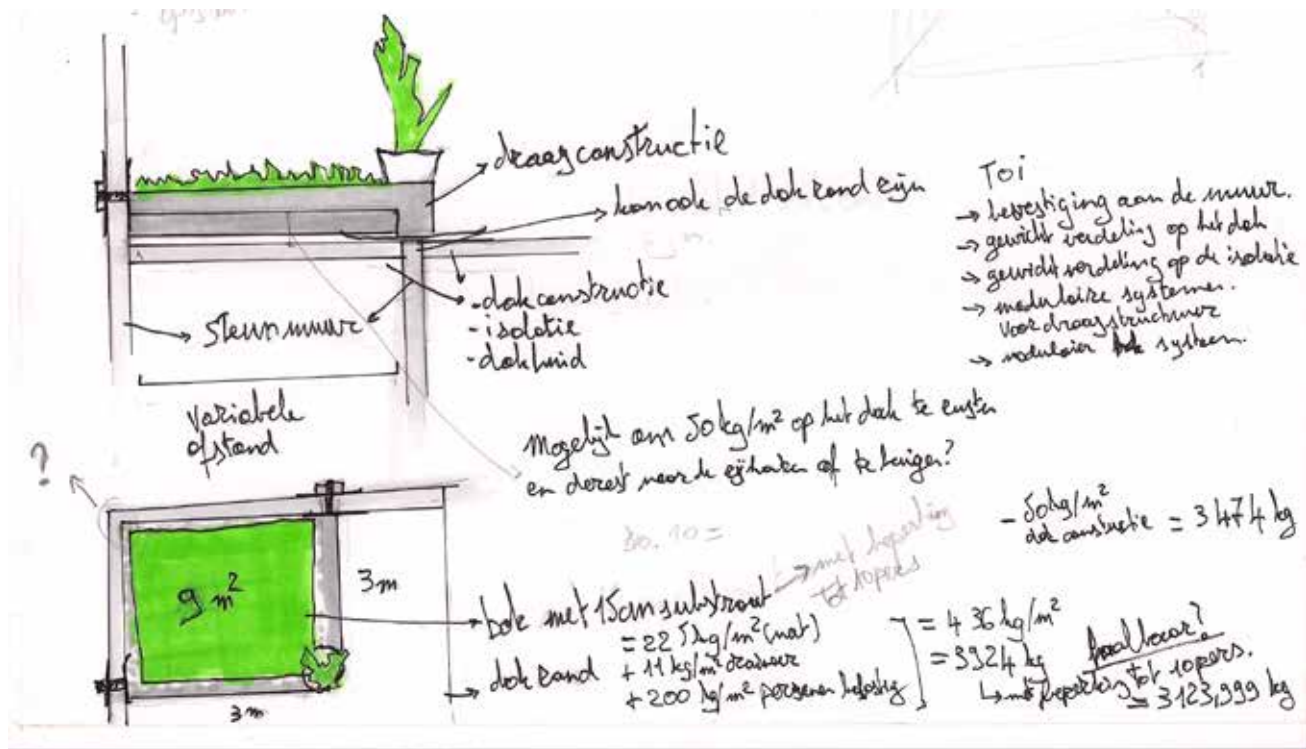 draagconstructie
kan ook de dakrand zijn
- dakconstructie
- isolatie
- dakhuid
steunmuur
variabele
afstand
Toi
→ bevestiging aan de muur.
→ gewicht verdeling op het dak
→ gewicht verdeling op de isolatie
→ modulaire systemen.
voor draagstructuur
→ modulair bak systeem.
Mogelijk om 50kg/m² op het dak te
en de rest naar de zijkanten af te
?
9 m²
3m
3m
bak met 15cm substraat
→ met beperking
tot 10pers
= 225kg/m² (nat)
+ 11 kg/m²
+ 200 kg/m² personen belasting
dakrand
30.10=
- 50kg/m²
dak constructie = 3474 kg
= 436 kg/m²
= 3924 kg
haalbaar?
↳ met beperking tot 10pers.
= 3123,999 kg